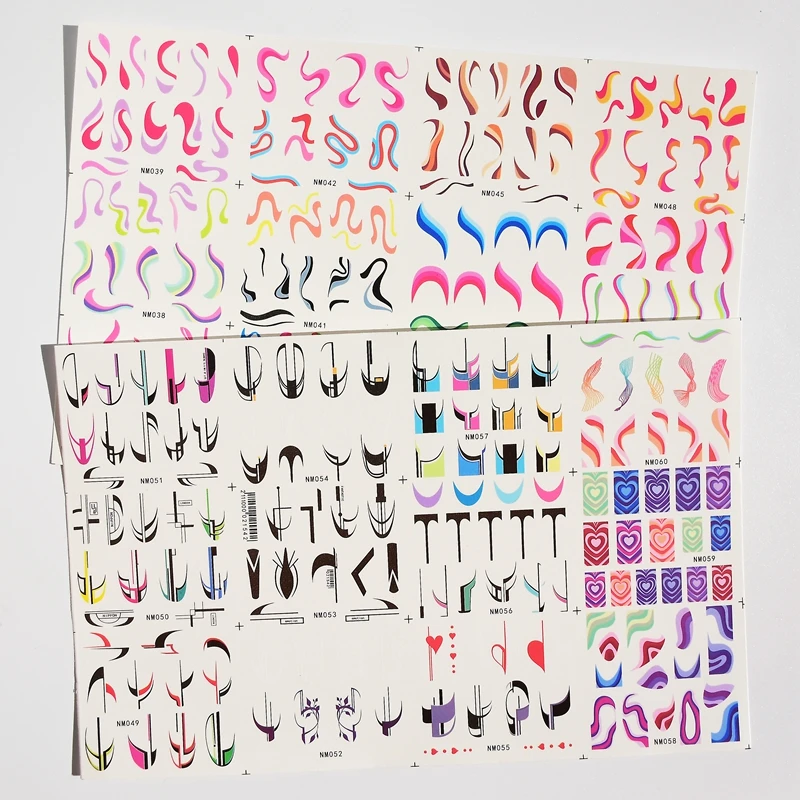 NM039
NM042
NM045
NM048
NM038
NM041
NM051
NM054
NM057
NM060
NM059
NM050
NM053
NM056
NM049
NM052
NM055
NM058